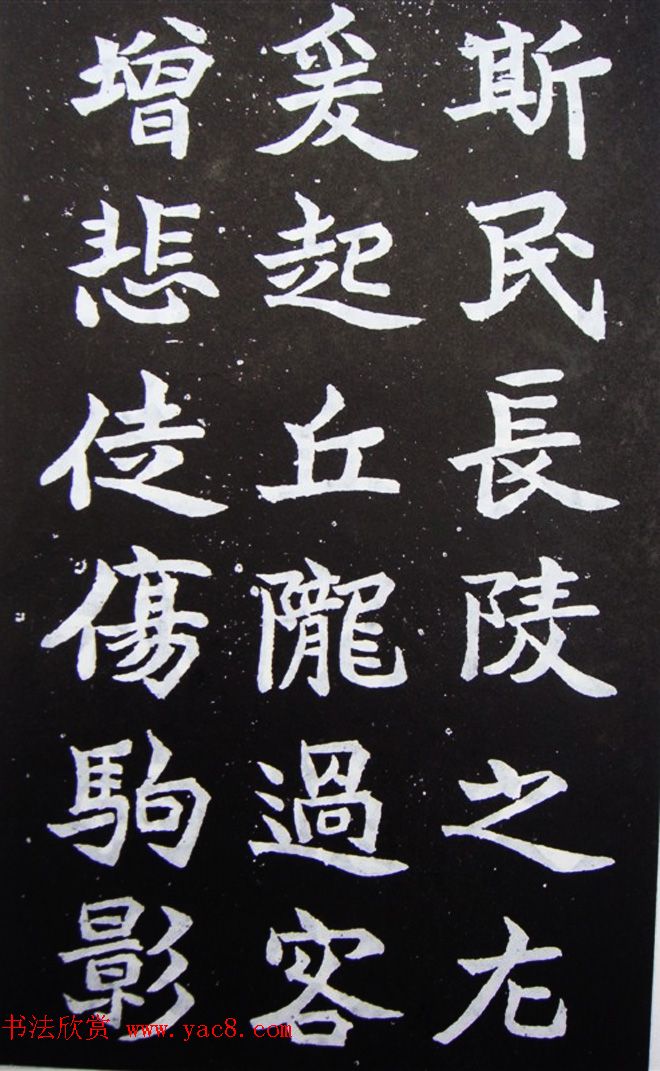 斯民長陵之左
爰起丘隴過客
增悲徒傷駒影
书法欣赏 www.yac8.com